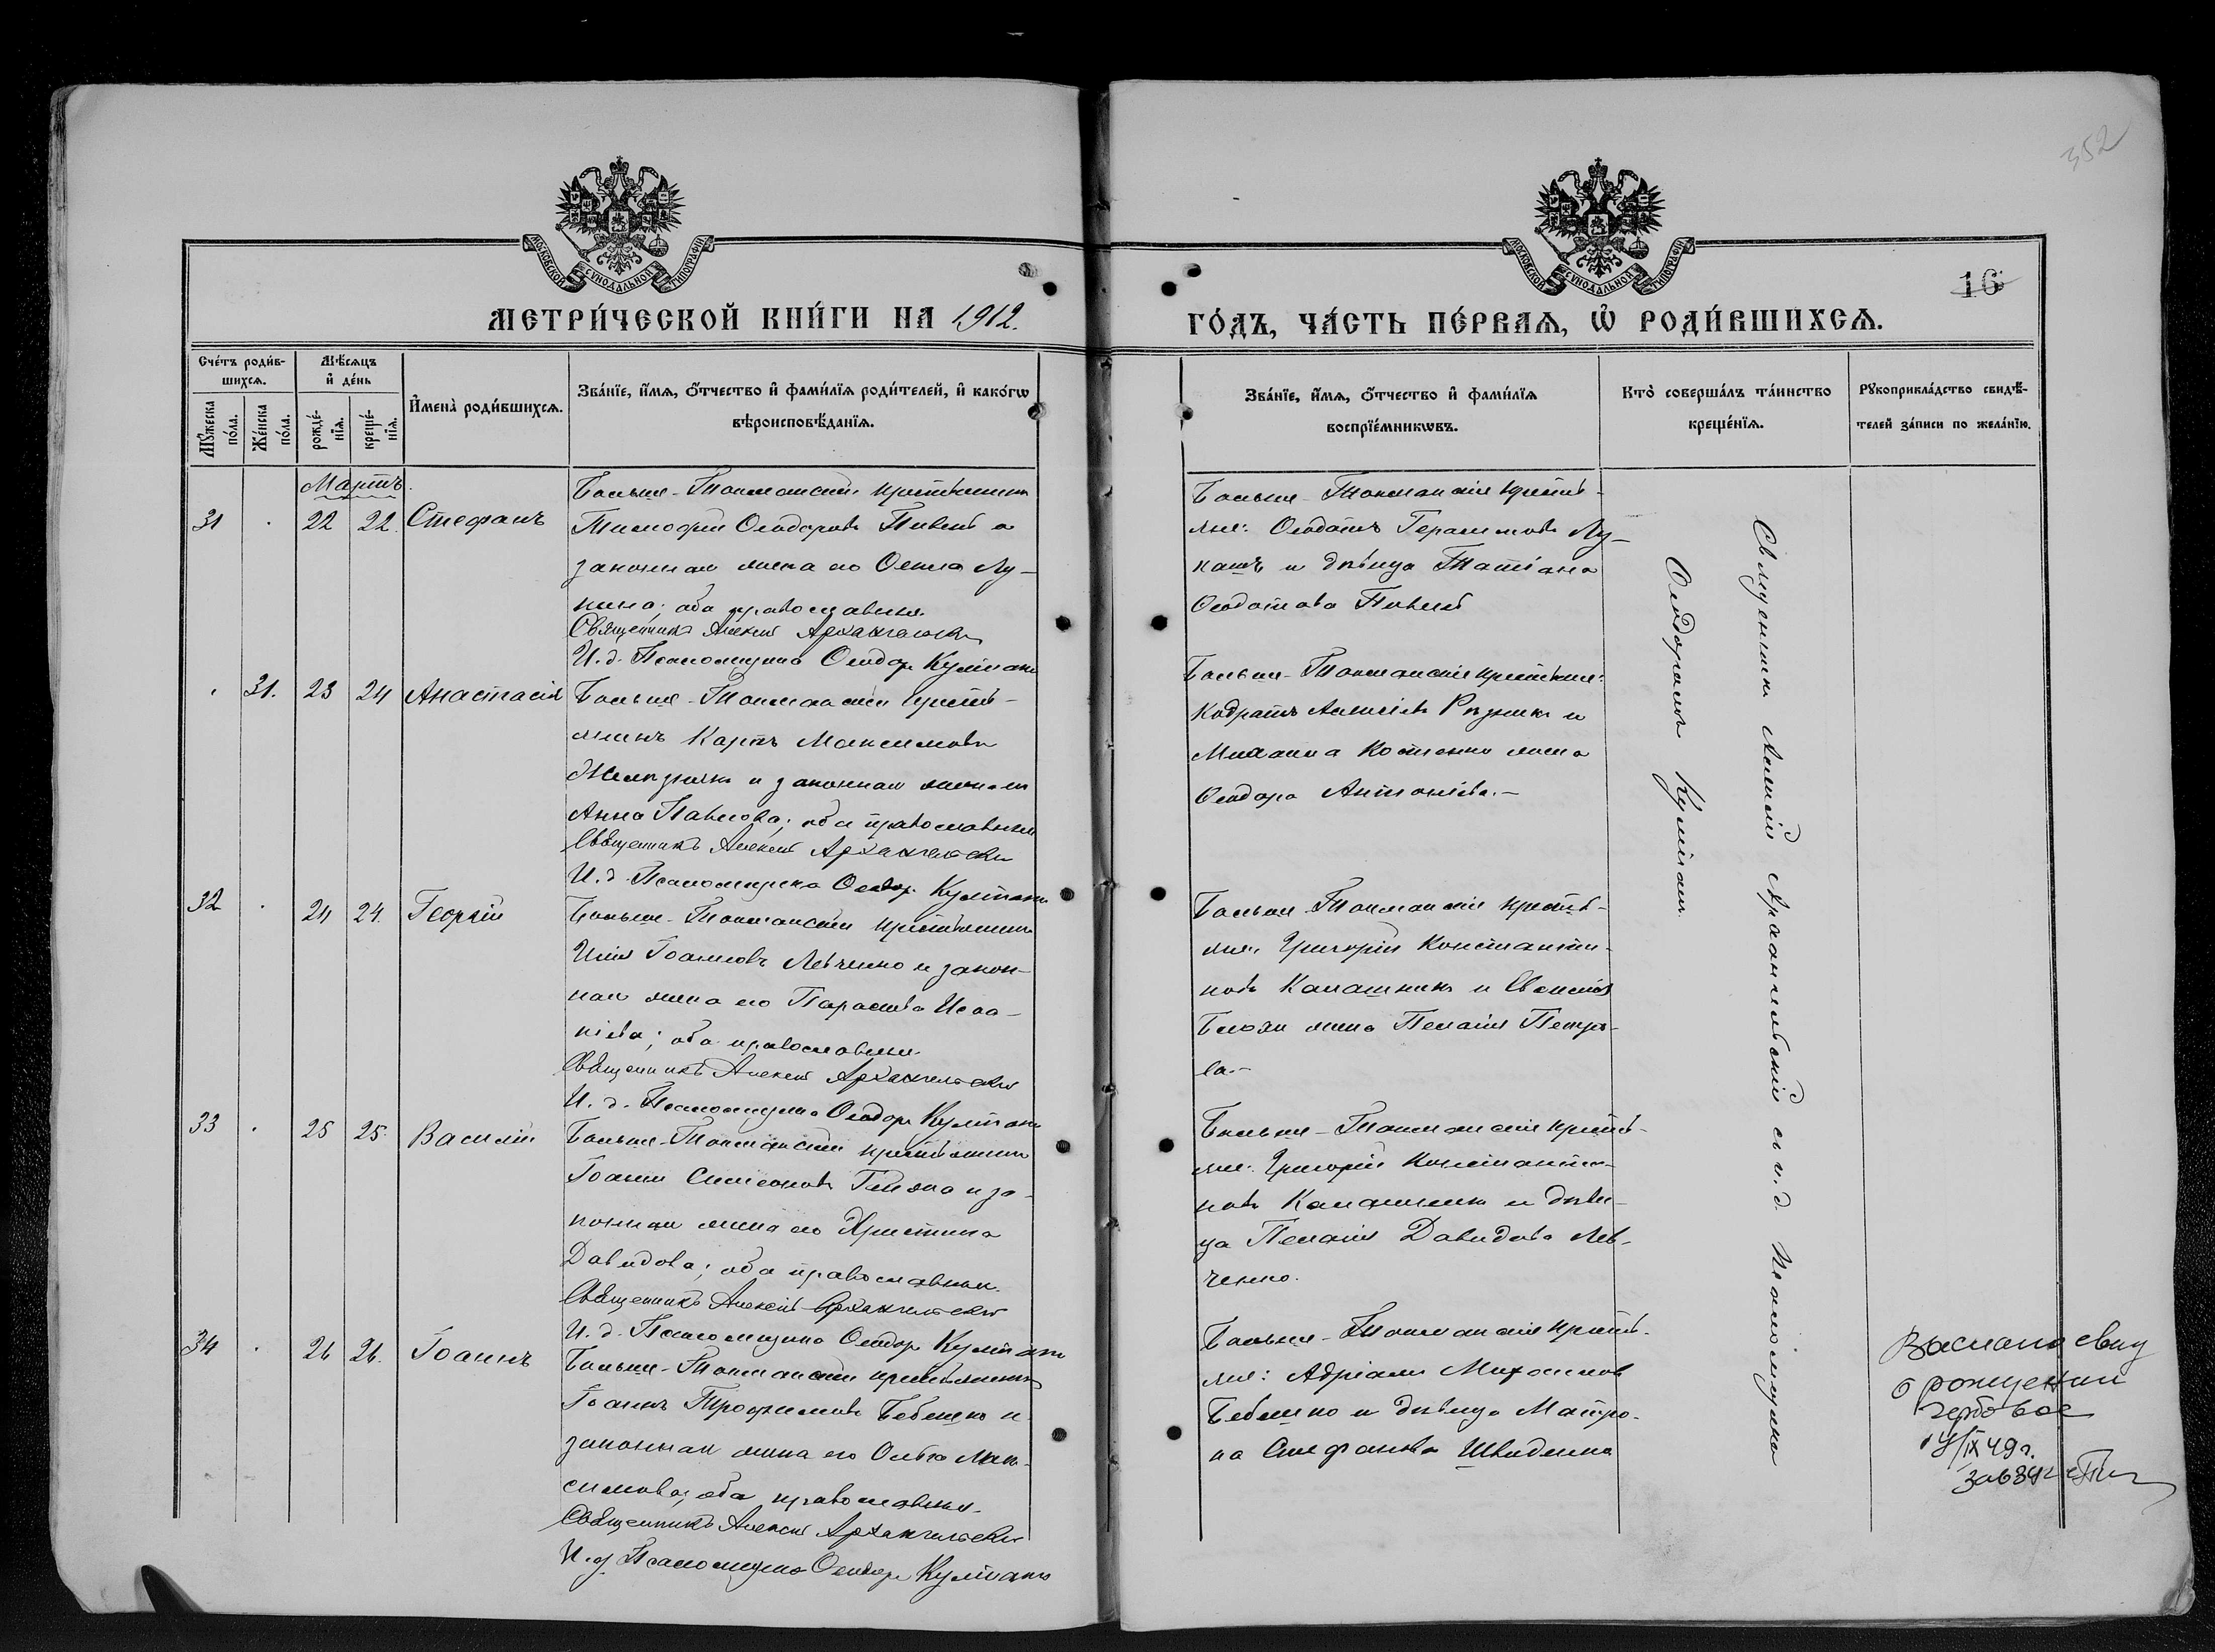 352
МОСКОВСКОЙ СѴНОДАЛЬНОЙ ТИПОГРАФІИ
МОСКОВСКОЙ СѴНОДАЛЬНОЙ ТИПОГРАФІИ
16
МЕТРИ́ЧЕСКОЙ КНИ́ГИ НА 1912.
ГО́ДЪ, ЧА́СТЬ ПЕ́РВАѦ, Ѡ҆ РОДИ́ВШИХСѦ.
Сче́тъ роди́в-
шихсѧ.
Мꙋ́жеска по́ла.
Же́нска по́ла.
Мѣ́сѧцъ
и҆ де́нь
рожде́-
нїѧ.
креще́-
нїѧ.
И҆мена̀ роди́вшихсѧ.
Зва́нїе, и҆́мѧ, ѻ҆́тчество и҆ фами́лїѧ роди́телей, и҆ како́гѡ
вѣроисповѣ́данїѧ.
Зва́нїе, и҆́мѧ, ѻ҆́тчество и҆ фами́лїѧ
воспрїе́мникѡвъ.
Кто̀ соверша́лъ та́инство
креще́нїѧ.
Рꙋкоприкла́дство свидѣ́-
телей за́писи по жела́нїю.
Мартъ.
31 . 22 22. Стефанъ
Больше-Токмакскій крестьянинъ
Тимофей Ѳеодоровъ Пивень и
законная жена его Елена Лу-
кина; оба православные.
Священникъ Алексій Архангельскій
И. д. Псаломщика Ѳеодоръ Куліпанъ
Больше-Токмакскіе крестья-
не: Ѳеодотъ Герасимовъ Лу-
кашъ и дѣвица Татіана
Ѳеодотова Пивень
. 31. 23 24 Анастасія
Больше-Токмакскій крестья-
нинъ Карпъ Максимовъ
Желѣзнякъ и законная жена его
Анна Павлова; оба православные
Священникъ Алексій Архангельскій
И. д. Псаломщика Ѳеодоръ Куліпанъ
Больше-Токмакскіе крестьяне:
Кодратъ Алексіевъ Рѣзникъ и
Михаила Костенко жена
Ѳеодора Антоніева.-
32 . 24 24. Георгій
Больше-Токмакскій крестьянинъ
Илія Іоанновъ Левченко и закон-
ная жена его Параскева Исаа-
кіева; оба православные.
Священникъ Алексій Архангельскій
И. д. Псаломщика Ѳеодоръ Куліпанъ
Больше-Токмакскіе крестья-
не: Григорій Константи-
новъ Калашникъ и
жена Пелагія Петро-
ва.-
33 . 25 25. Василій
Больше-Токмакскій крестьянинъ
Іоаннъ Симеоновъ и за-
конная жена его Христина
Давидова; оба православные.
Священникъ Алексій Архангельскій
И. д. Псаломщика Ѳеодоръ Куліпанъ
Больше-Токмакскіе крестья-
не: Григорій Константи-
новъ Калашникъ и дѣви-
ца Пелагія Давидова Лев-
ченко.
34 . 26 26. Іоаннъ
Больше-Токмакскій крестьянинъ
Іоаннъ Трофимовъ Бебешко и
законная жена его Ольга Мак-
симова; оба православные.
Священникъ Алексій Архангельскій
И. д. Псаломщика Ѳеодоръ Куліпанъ
Больше-Токмакскіе крестья-
не: Адріанъ
Бебешко и дѣвица Матро-
на Стефанова Швиденко
Священникъ Алексій Архангельскій съ и. д. Псаломщика
Ѳеодоромъ Куліпанъ.
Выслано свид
о рождении
гербовое
14/IX 49 г.